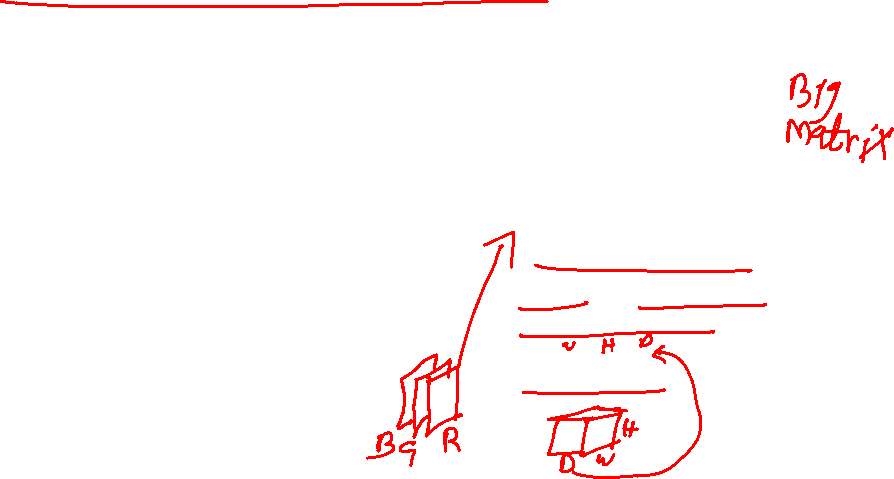 Big
Matrix
W H D
H
B G R
D W